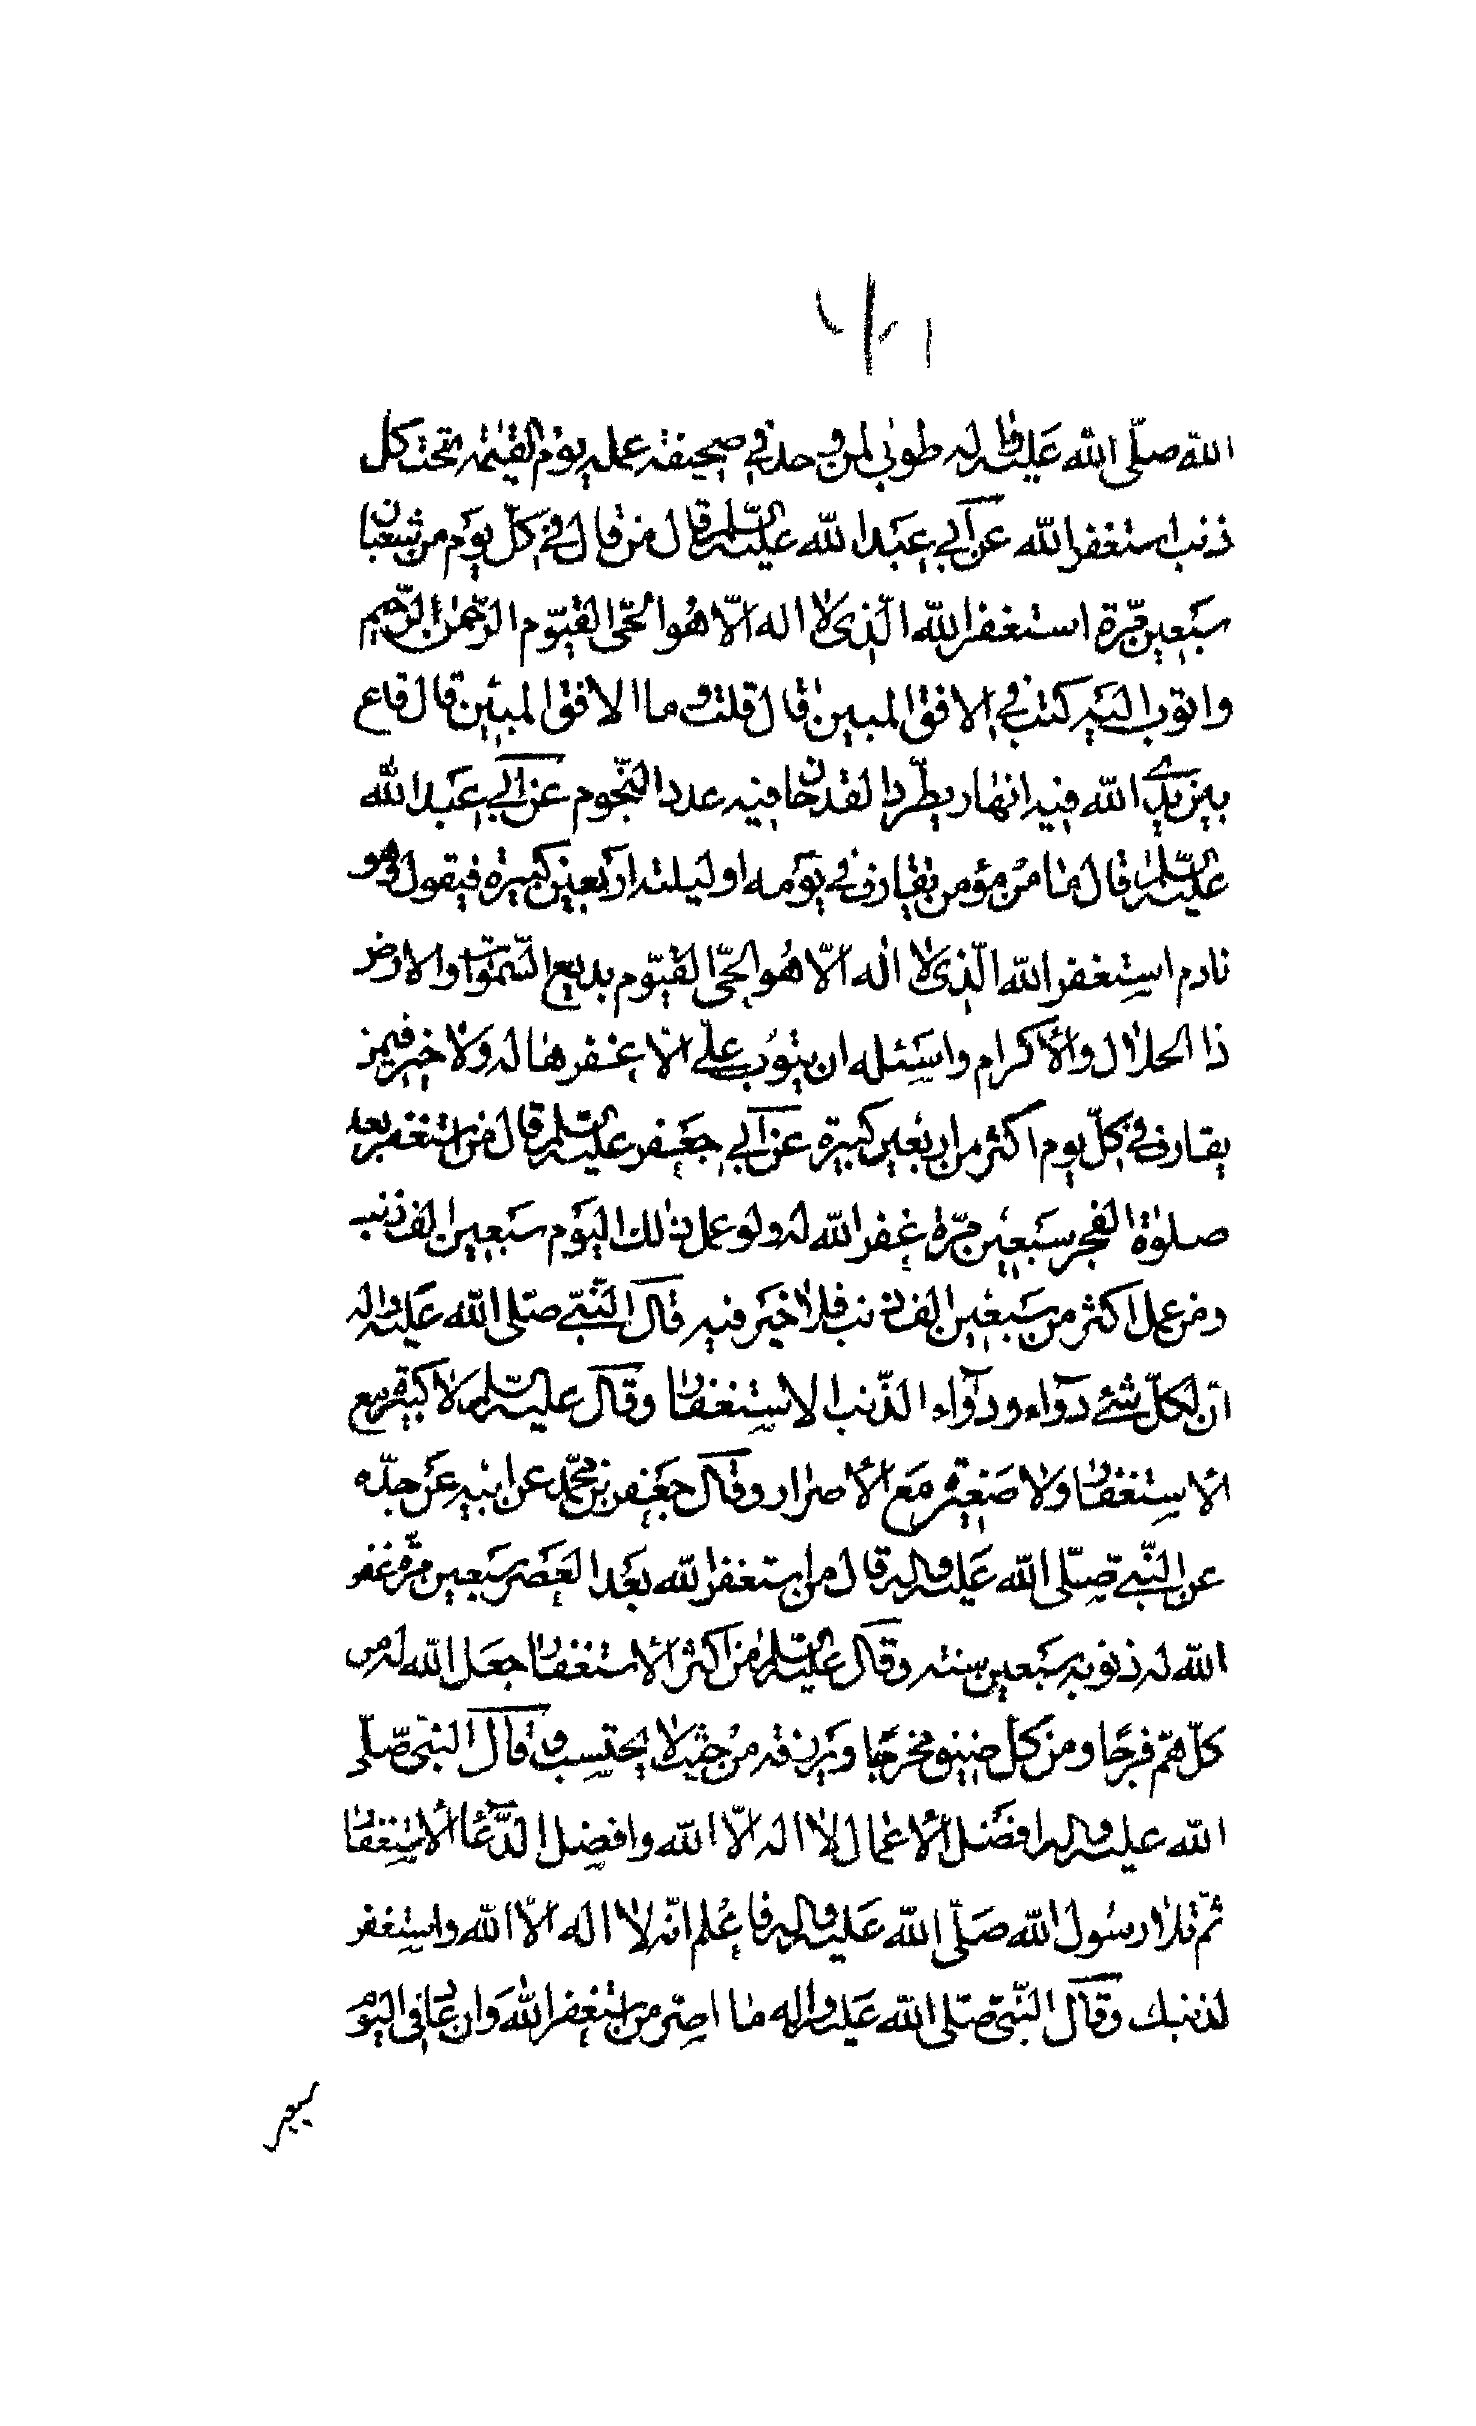 الله صلّى الله عليه واله طوبى لمن وجد في صحيفة عمله يوم القيمة تحت كل
ذنب استغفر الله عن أبي عبد الله عليه السلم قال من قال في كلّ يوم من شعبان
سبعين مرّة استغفر الله الّذي لا اله الّا هو الحيّ القيّوم الرّحمن الرّحيم
واتوب اليه كتب في الافق المبين قال قلت وما الافق المبين قال قاع
بين يدي الله فيه انهار يطّرد القدحان فيه عدد النّجوم عن أبي عبد الله
عليه السّلم قال ما من مؤمن يقارف في يومه او ليلته اربعين كبيرة فيقول وهو
نادم استغفر الله الّذي لا اله الّا هو الحيّ القيّوم بديع السّموات والارض
ذا الجلال والأكرام واسئله ان يتوب علىّ الّا غفرها له ولا خير فيمن
يقارف في كلّ يوم اكثر من اربعين كبيرة عن أبي جعفر عليه السلم قال من استغفر بعد
صلوة الفجر سبعين مرّة غفر الله له ولو عمل ذلك اليوم سبعين الف ذنب
ومن عمل اكثر من سبعين الف ذنب فلا خير فيه قال النّبيّ صلّى الله عليه واله
انّ لكلّ شئ دواء ودواء الذّنب الاستغفار وقال عليه السلم لا كبيرة مع
الأستغفار ولا صغيرة مع الأصرار وقال جعفر بن محمّد عن ابيه عن جدّه
عن النّبيّ صلّى الله عليه واله قال من استغفر الله بعد العصر سبعين مرّة غفر
الله له ذنوبه سبعين سنة وقال عليه السّلم من اكثر الأستغفار جعل الله له من
كلّ همّ فرجًا ومن كلّ ضيق مخرجًا ويرزقه من حيث لا يحتسب وقال النبيّ صلّى
الله عليه واله افضل الأعمال لا اله الّا الله وافضل الدّعاء الأستغفار
ثمّ تلا رسول الله صلّى الله عليه واله فاعلم انّه لا اله الّا الله واستغفر
لذنبك وقال النّبيّ صلّى الله عليه واله ما اصرّ من استغفر الله وان عاد في اليوم